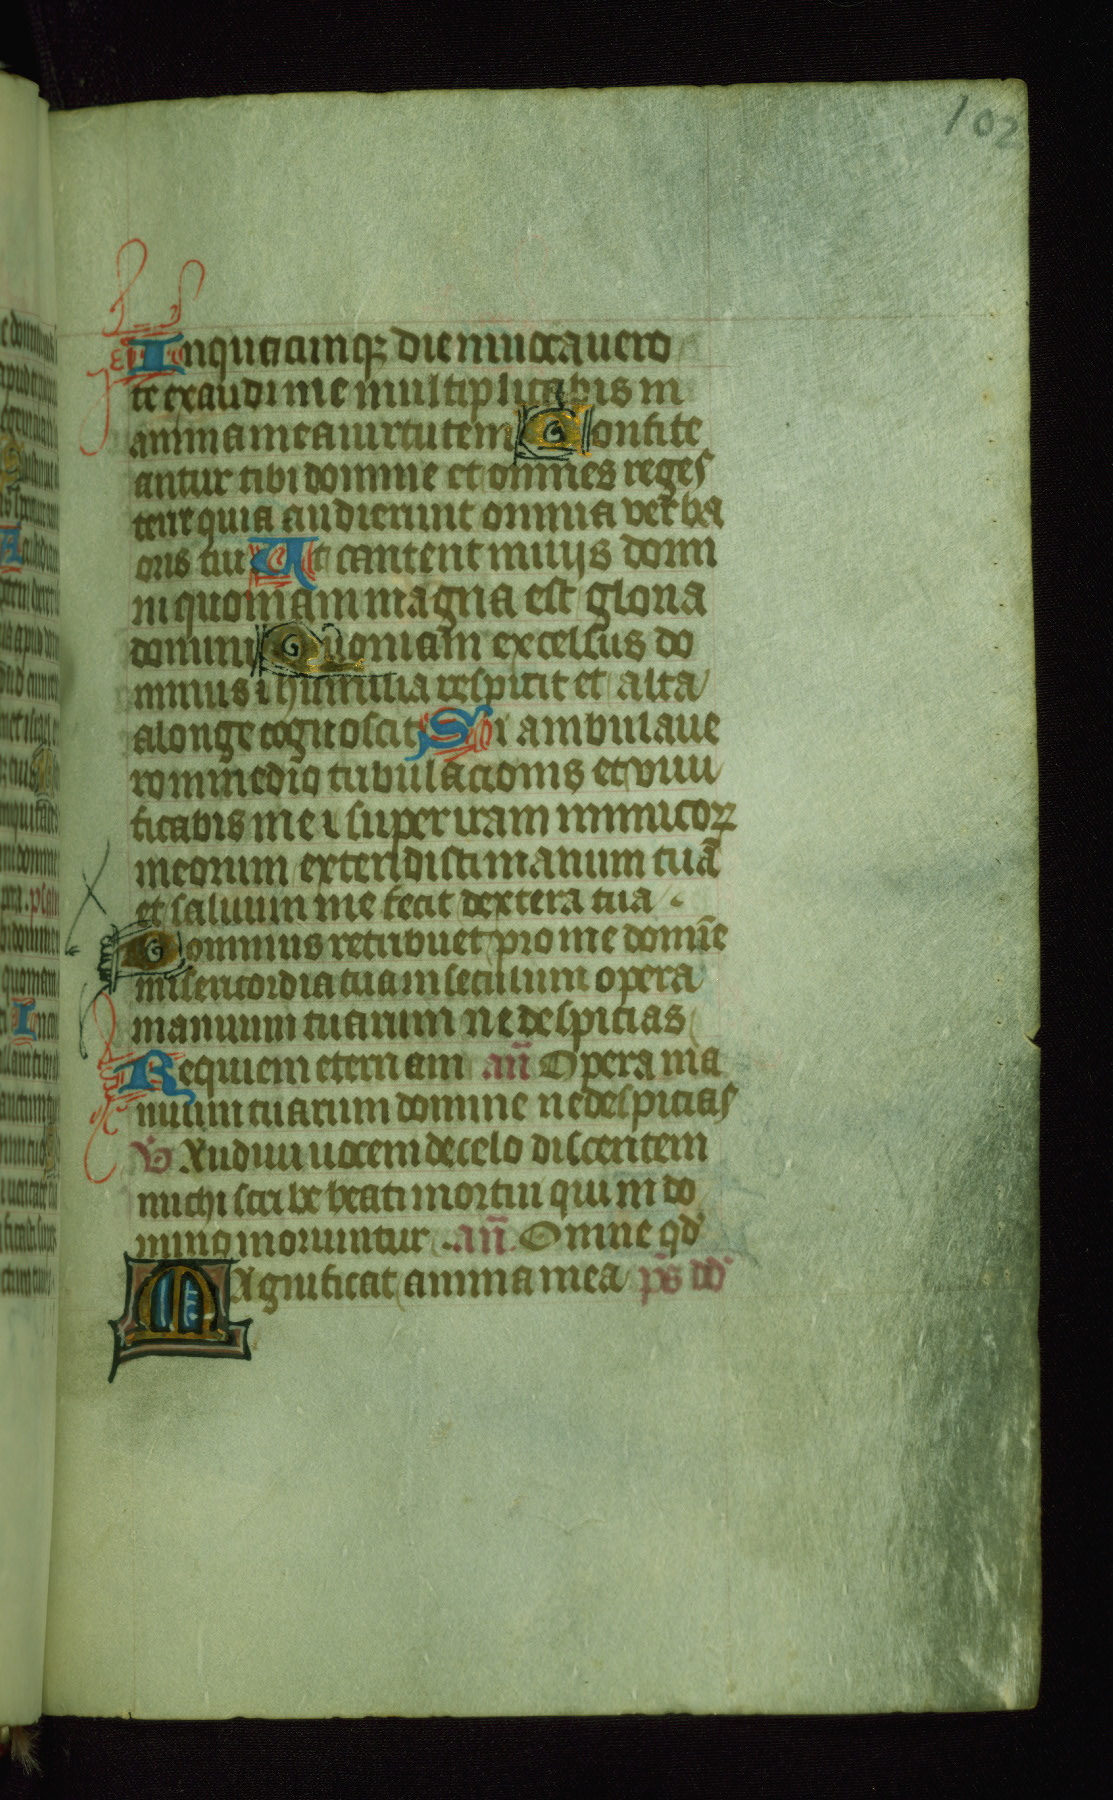 102
In quacunqz die inuocauero
te exaudi me multiplicabis in
anima mea uirtutem Confite
antur tibi domine et omnes reges
terre quia audierunt omnia verba
oris tui Ut cantent in uijs domi
ni quoniam magna est gloria
domini Quoniam excelsus do
minus i humilia respicit et alta
a longe cognoscit Si ambulaue
ro in medio tribulacionis et viui
ficabis me i super iram inimicorz
meorum extendisti manum tuā
et saluum me fecit dextera tua
Dominus retribuet pro me domīe
misericordia tua in seculum opera
manuum tuarum ne despicias
Requiem eternam añ Opera ma
nuum tuarum domine ne despicias
V Audiui uocem de celo discentem
michi scribe beati mortui qui in do
mino moriuntur . añ. Omne qd
Magnificat anima mea ps dd